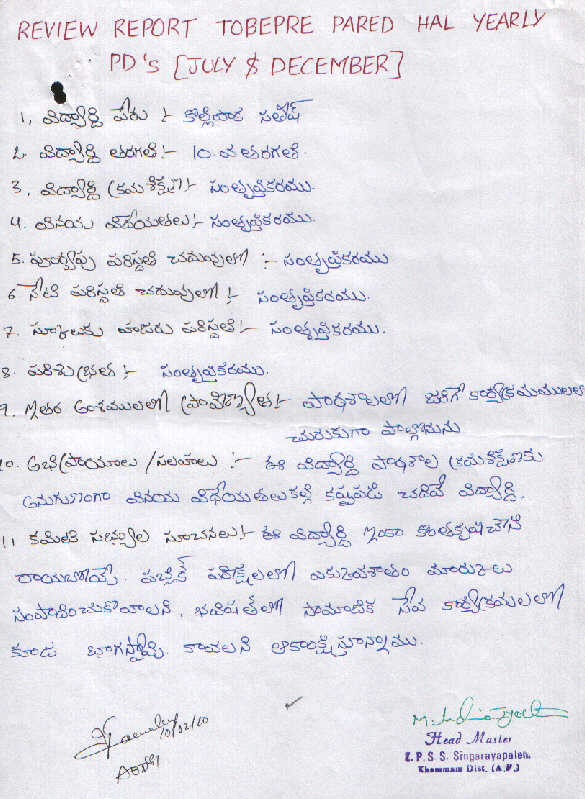 REVIEW REPORT TOBEPRE PARED HAL YEARLY
PD's [JULY & DECEMBER]
1. విద్యార్థి పేరు :- కొల్లిపాక సతీష్
2. విద్యార్థి తరగతి :- 10.వ తరగతి.
3. విద్యార్థి క్రమశిక్షణ :- సంతృప్తికరము.
4. వినయ విధేయతలు :- సంతృప్తికరము.
5. పూర్వపు పరిస్థితి చదువులో :- సంతృప్తికరము
6 నేటి పరిస్థితి చదువులో :- సంతృప్తికరము.
7. స్కూలుకు హాజరు పరిస్థితి :- సంతృప్తికరము.
8. పరిశుభ్రత :- సంతృప్తికరము.
9. ఇతర అంశములలో ప్రావీణ్యత :- పాఠశాలలో జరిగే కార్యక్రమములలో
చురుకుగా పాల్గొనును
10. అభిప్రాయాలు / సలహాలు :- ఈ విద్యార్థి పాఠశాల క్రమశిక్షణకు
అనుగుణంగా వినయ విధేయతలు కల్గి కష్టపడి చదివే విద్యార్థి.
11 కమిటి సభ్యుల సూచనలు :- ఈ విద్యార్థి ఇంకా కొంత కృషి చేసి
రాబోయే పబ్లిక్ పరీక్షలలో ఎక్కువశాతం మార్కులు
సంపాదించుకోవాలని, భవిష్యత్ లో సామాజిక సేవ కార్యక్రమలలో
కూడ భాగస్వామి కావాలని ఆకాంక్షిస్తూన్నాము.
10/02/20
Head Master
Z.P.S.S. Singarayapalem,
Khammam Dist. (A.P.)